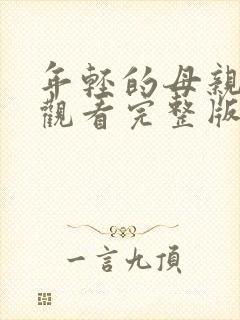 年輕的母親
觀看完整版
一言九頂